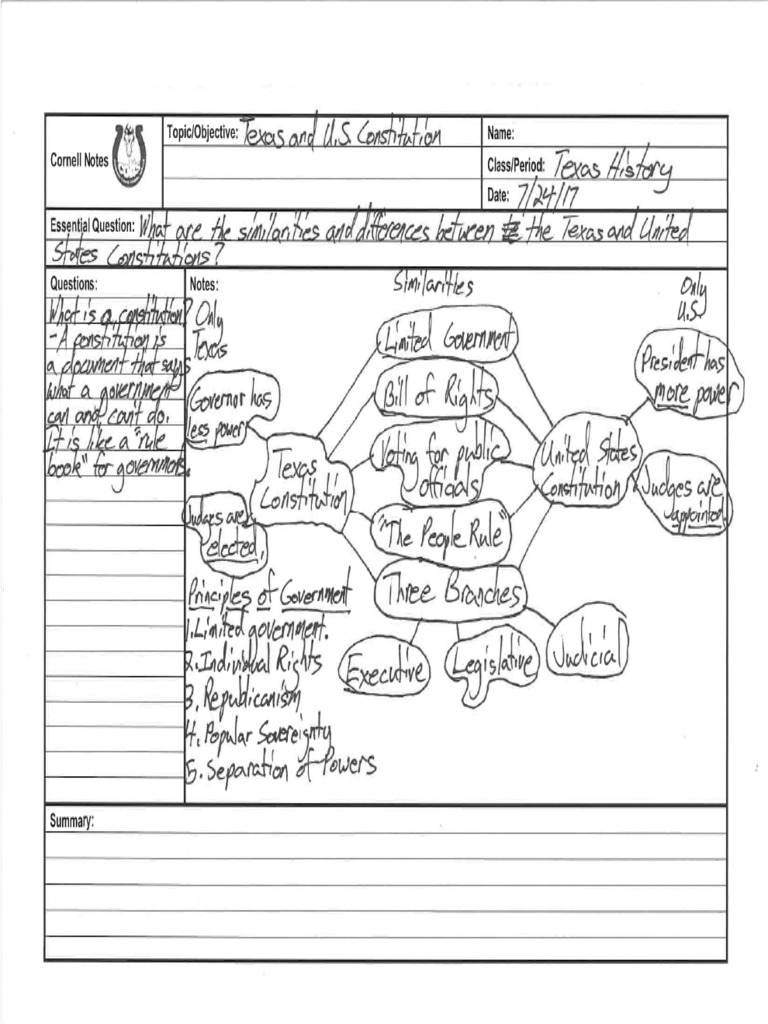 Cornell Notes
Topic/Objective: Texas and U.S. Constitution
Name:
Class/Period: Texas History
Date: 7/24/17
Essential Question: What are the similarities and differences between the Texas and United
States Constitutions?
Questions:
What is a constitution?
- A constitution is
a document that says
what a government
can and can't do.
It is like a "rule
book" for governments.
Notes:
Similarities
Only
U.S.
Only
Texas
Limited Government
Bill of Rights
Voting for public
officials
"The People Rule"
Three Branches
Executive
Legislative
Judicial
Governor has
less power
Texas
Constitution
Judges are
elected.
United States
Constitution
President has
more power
Judges are
appointed.
Principles of Government
1. Limited government.
2. Individual Rights
3. Republicanism
4. Popular Sovereignty
5. Separation of Powers
Summary: